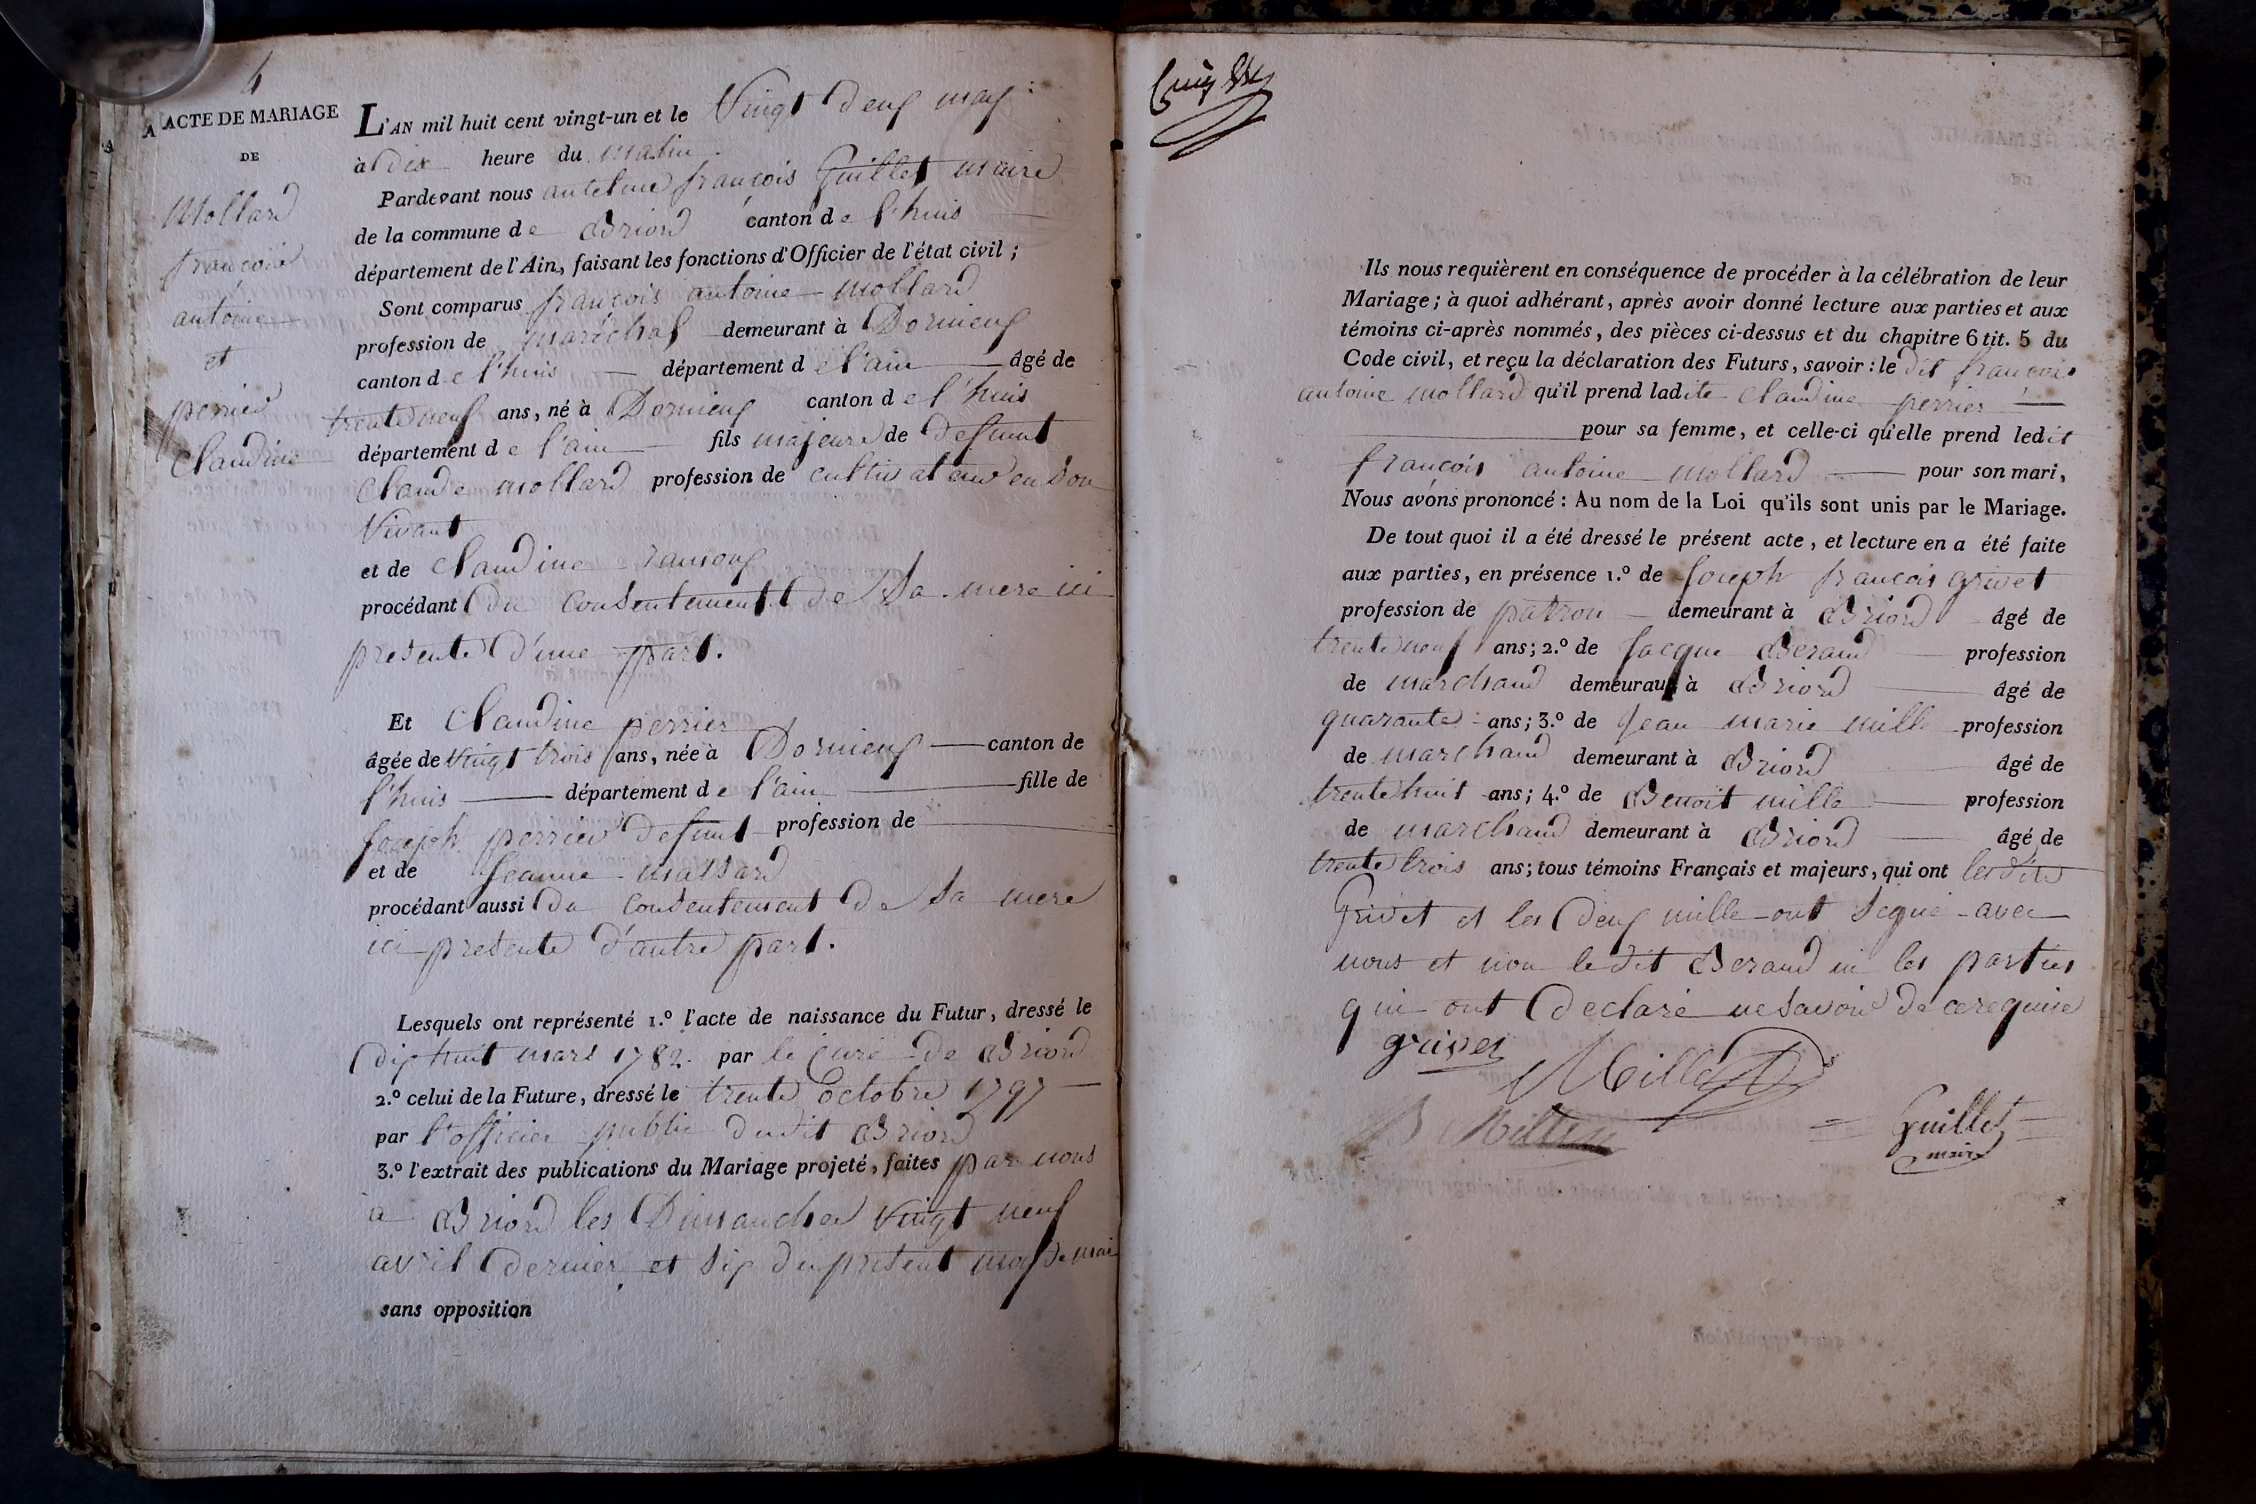 4
ACTE DE MARIAGE
DE
Mollard
françois
antoine
et
perrier
Claudine
L'AN mil huit cent vingt-un et le Vingt Deux may
à Dix heure du matin.
Pardevant nous antelme françois Guillet maire
de la commune de Briord canton de l'huis
département de l'Ain, faisant les fonctions d'Officier de l'état civil ;
Sont comparus françois antoine mollard
profession de maréchal demeurant à Dornieux
canton de l'huis département de l'ain âgé de
trente neuf ans, né à Dornieux canton de l'huis
département de l'ain fils majeure de defunt
Claude mollard profession de cultivateur en Son
Vivant
et de Claudine
procédant Du Consentement De Sa mere ici
presente D'une part.
Et Claudine perrier
âgée de vingt trois ans, née à Dornieux canton de
l'huis département de l'ain fille de
Joseph perrier defunt profession de
et de Jeanne massard
procédant aussi Du Consentement De Sa mere
ici presente d'autre part.
Lesquels ont représenté 1.º l'acte de naissance du Futur, dressé le
Dix huit mars 1782. par le Curé De Briord
2.º celui de la Future, dressé le trente Octobre 1797
par l'officier public Dudit Briord
3.º l'extrait des publications du Mariage projeté, faites par nous
a Briord les Dimanches Vingt neuf
avril Dernier et Six Du présent moy de mai
sans opposition
Ils nous requièrent en conséquence de procéder à la célébration de leur
Mariage ; à quoi adhérant, après avoir donné lecture aux parties et aux
témoins ci-après nommés, des pièces ci-dessus et du chapitre 6 tit. 5 du
Code civil, et reçu la déclaration des Futurs, savoir : le dit françois
antoine mollard qu'il prend ladite Claudine perrier
pour sa femme, et celle-ci qu'elle prend ledit
françois antoine mollard pour son mari,
Nous avons prononcé : Au nom de la Loi qu'ils sont unis par le Mariage.
De tout quoi il a été dressé le présent acte, et lecture en a été faite
aux parties, en présence 1.º de Joseph françois grivet
profession de patron demeurant à Briord âgé de
trente neuf ans ; 2.º de Jacque Beraud profession
de marchand demeurant à Briord âgé de
quarante ans ; 3.º de Jean marie mille profession
de marchand demeurant à Briord âgé de
trente huit ans ; 4.º de Benoit mille profession
de marchand demeurant à Briord âgé de
trente trois ans ; tous témoins Français et majeurs, qui ont lesdits
Grivet et les Deux mille ont Signé avec
nous et non ledit Beraud ni les parties
qui ont Declaré ne Savoir de ce requise
grivet
Mille
B Mille
Guillet
maire